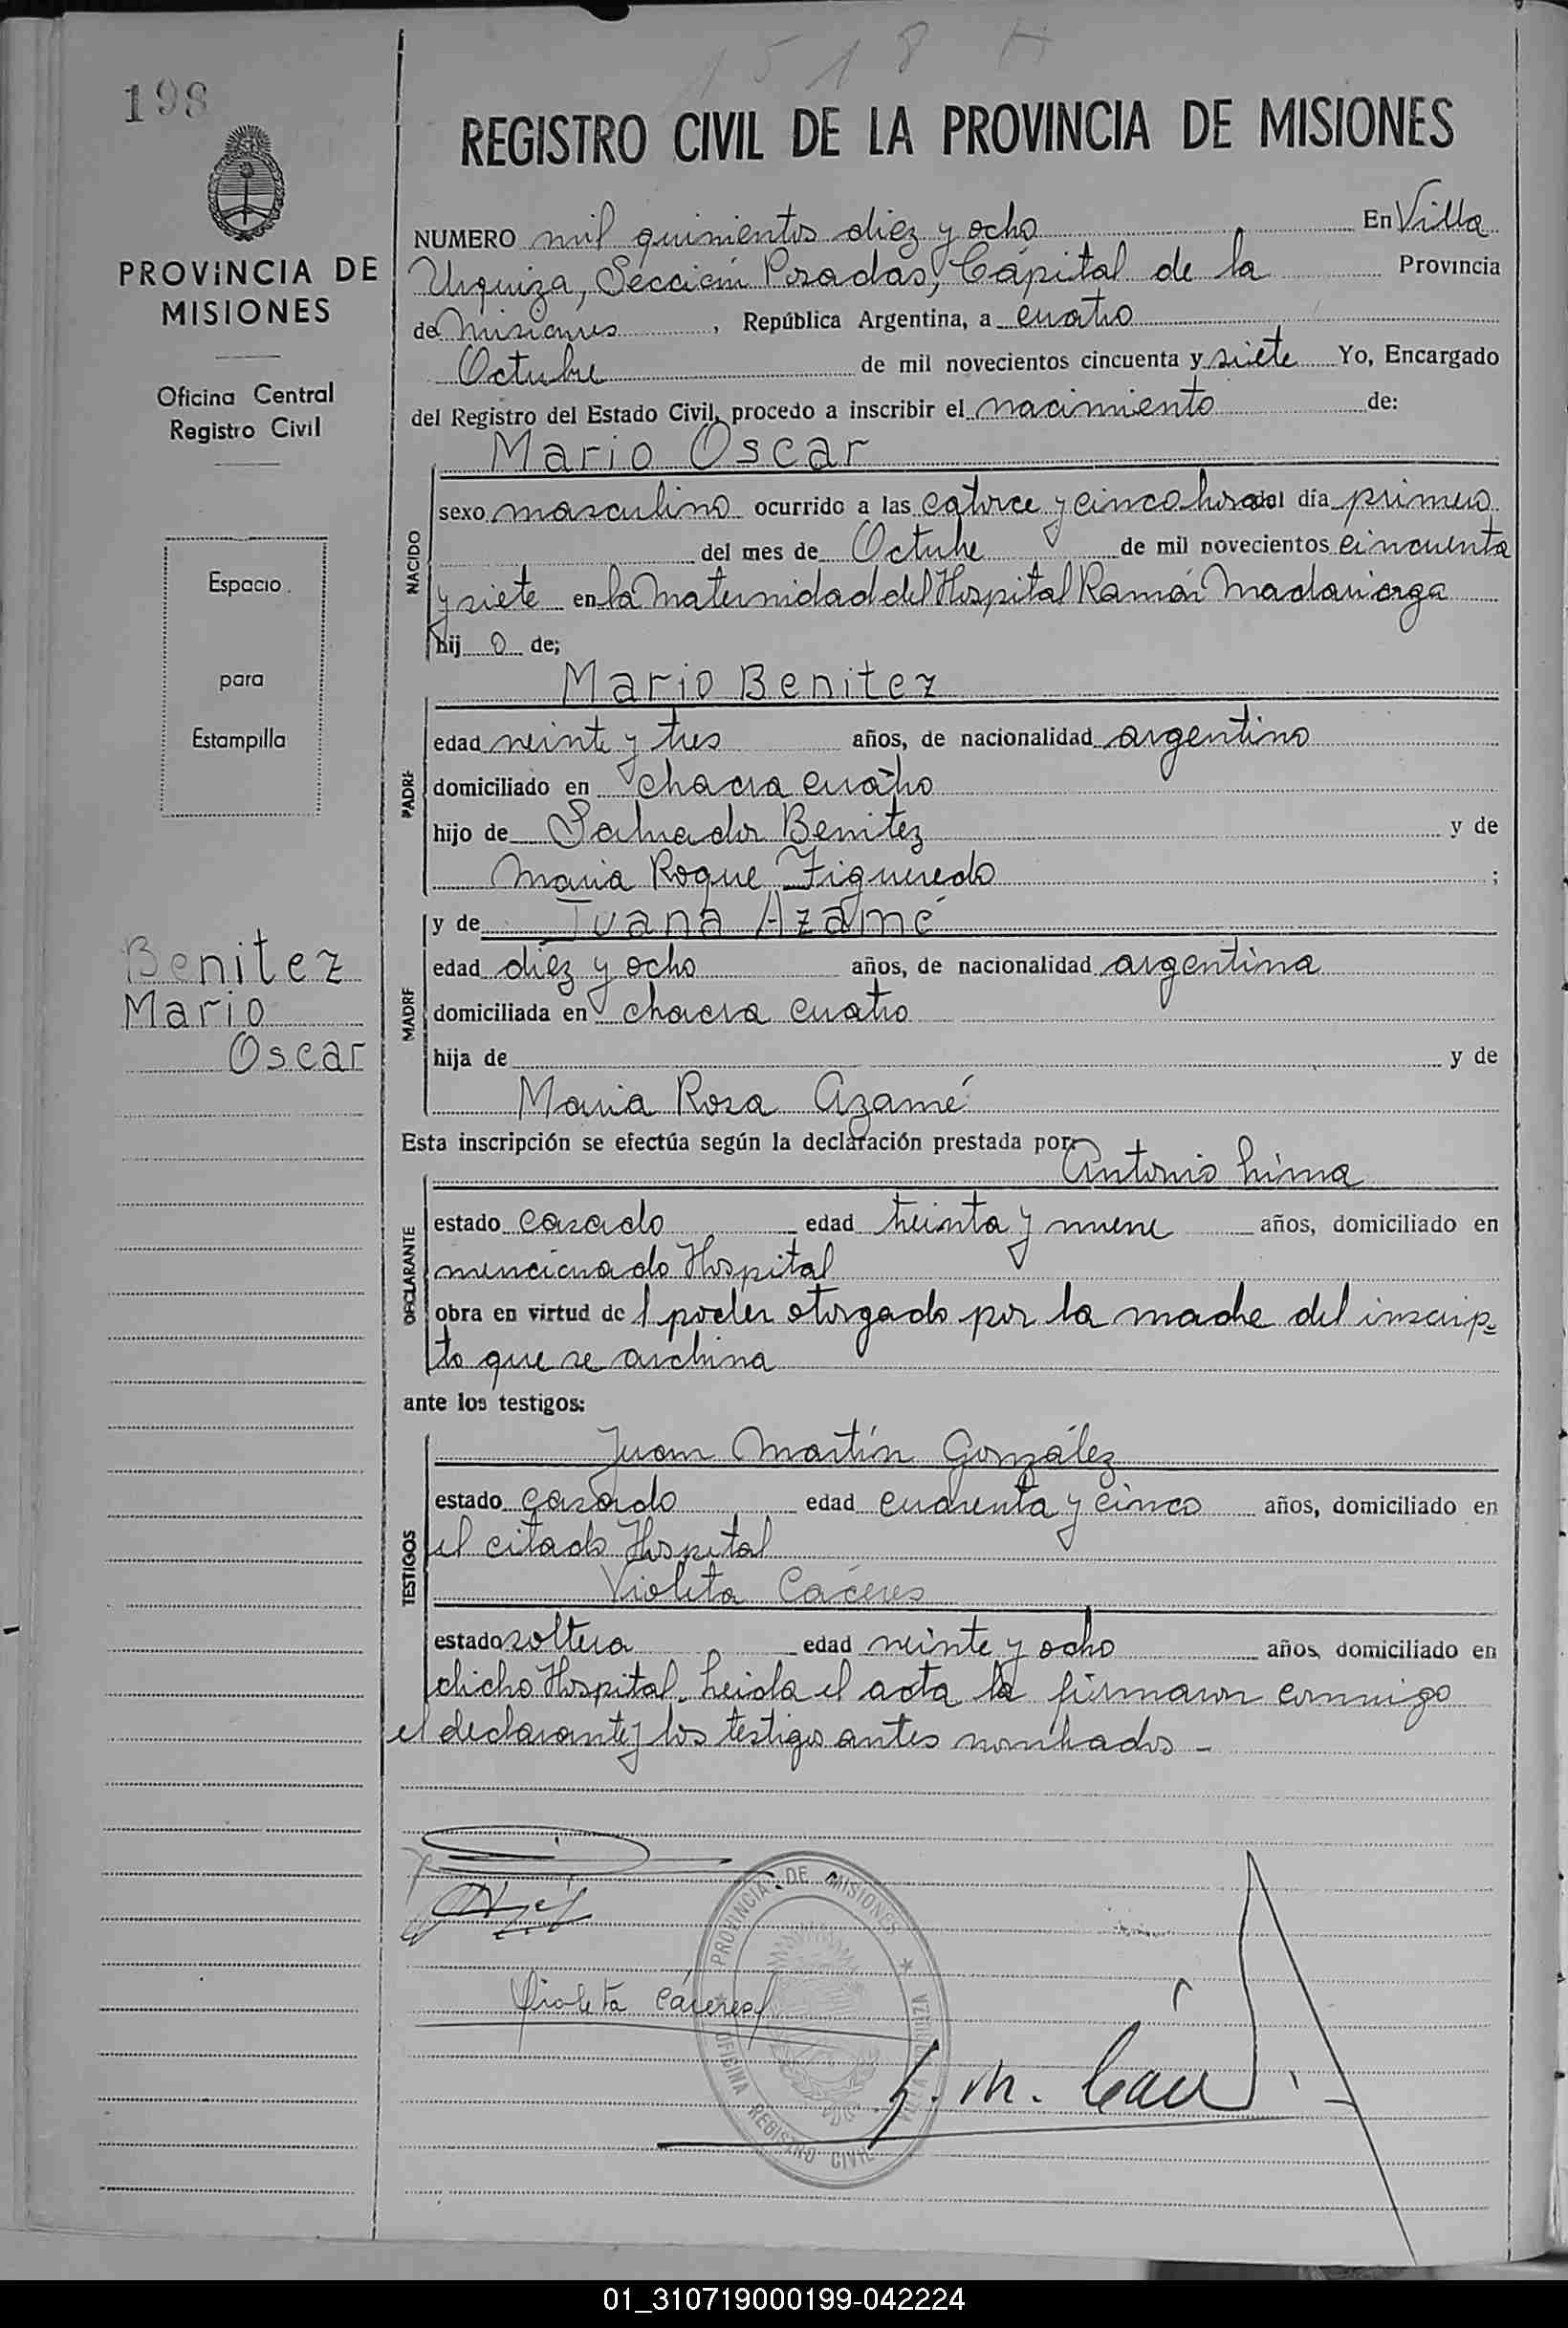 1518 H
198
REGISTRO CIVIL DE LA PROVINCIA DE MISIONES
PROVINCIA DE
MISIONES
Oficina Central
Registro Civil
Espacio
para
Estampilla
Benitez
Mario
Oscar
NUMERO mil quinientos diez y ocho En Villa
Urquiza, Sección Posadas, Cápital de la Provincia
de Misiones, República Argentina, a cuatro
Octubre de mil novecientos cincuenta y siete Yo, Encargado
del Registro del Estado Civil, procedo a inscribir el nacimiento de:
Mario Oscar
NACIDO
sexo masculino ocurrido a las catorce y cinco horas del día primero
del mes de Octubre de mil novecientos cincuenta
y siete en la Maternidad del Hospital Ramón Madariaga
hijo de;
Mario Benitez
PADRE
edad veinte y tres años, de nacionalidad argentino
domiciliado en chacra cuatro
hijo de Salvador Benitez y de
Maria Roque Figueredo ;
y de Juana Azamé
MADRE
edad diez y ocho años, de nacionalidad argentina
domiciliada en chacra cuatro
hija de y de
Maria Rosa Azamé
Esta inscripción se efectúa según la declaración prestada por:
Antonio Lima
DECLARANTE
estado casado edad treinta y nueve años, domiciliado en
mencionado Hospital
obra en virtud de l poder otorgado por la madre del inscrip=
to que se archiva
ante los testigos:
Juan Martín González
TESTIGOS
estado casado edad cuarenta y cinco años, domiciliado en
el citado Hospital
Violeta Cáceres
estado soltera edad veinte y ocho años, domiciliado en
dicho Hospital. Leida el acta la firmaron conmigo
el declarante y los testigos antes nombrados -
PROVINCIA DE MISIONES
OFICINA REGISTRO CIVIL VILLA URQUIZA
Violeta Cáceres
01_310719000199-042224